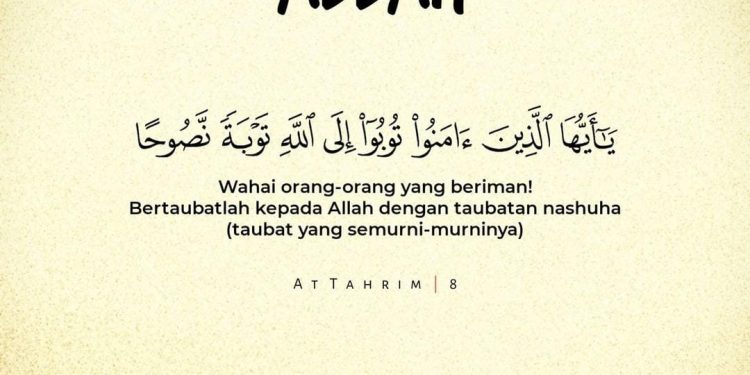 يَٰٓأَيُّهَا ٱلَّذِينَ ءَامَنُوا۟ تُوبُوٓا۟ إِلَى ٱللَّهِ تَوْبَةً نَّصُوحًا
Wahai orang-orang yang beriman!
Bertaubatlah kepada Allah dengan taubatan nashuha
(taubat yang semurni-murninya)
AT TAHRIM | 8